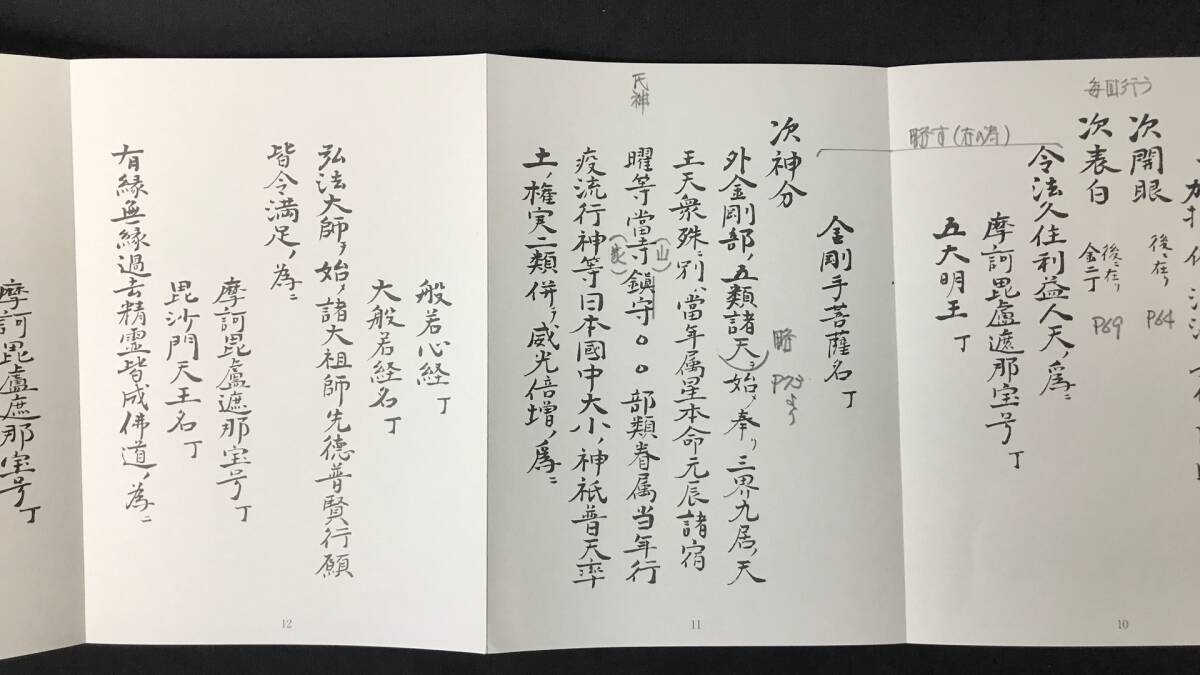 毎回行う
次開眼
後ニ在リ P64
次表白
後ニ在リ
金二丁 P69
略す(右の為)
令法久住利益人天ノ為ニ
摩訶毘盧遮那宝号 丁
五大明王 丁
金剛手菩薩名 丁
次神分
略 P73より
外金剛部ノ五類諸天ヲ始メ奉リ三界九居ノ天
王天衆殊ニ別ハ當年属星本命元辰諸宿
氏神
曜等當寺鎮守〇〇部類眷属当年行
(山)
疫流行神等日本國中大小ノ神祇普天率
土ノ権実二類併ラ威光倍増ノ為ニ
般若心経 丁
大般若経名 丁
弘法大師ヲ始メ諸大祖師先徳普賢行願
皆令満足ノ為ニ
摩訶毘盧遮那宝号 丁
毘沙門天王名 丁
有縁無縁過去精霊皆成佛道ノ為ニ
摩訶毘盧遮那宝号 丁
10
11
12